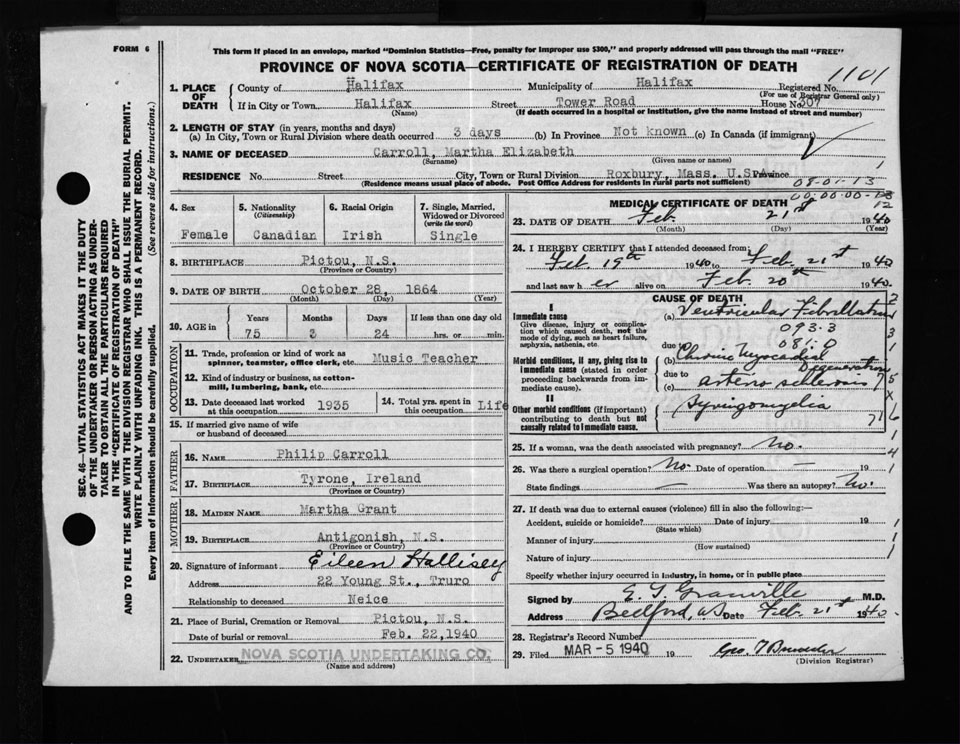 FORM 6
This form if placed in an envelope, marked "Dominion Statistics—Free, penalty for improper use $300," and properly addressed will pass through the mail "FREE"
PROVINCE OF NOVA SCOTIA—CERTIFICATE OF REGISTRATION OF DEATH
1101
1. PLACE OF DEATH
County of Halifax Municipality of Halifax Registered No.
(For use of Registrar General only)
If in City or Town Halifax Street Tower Road House No. 307
(Name) (If death occurred in a hospital or institution, give the name instead of street and number)
2. LENGTH OF STAY (in years, months and days)
(a) In City, Town or Rural Division where death occurred 3 days (b) In Province Not known (c) In Canada (if immigrant)
3. NAME OF DECEASED Carroll, Martha Elizabeth
(Surname) (Given name or names)
RESIDENCE No. Street City, Town or Rural Division Roxbury, Mass. U.S.A. Province
(Residence means usual place of abode. Post Office Address for residents in rural parts not sufficient)
1
08-01-13
00-00-00-13
12
4. Sex Female
5. Nationality (Citizenship) Canadian
6. Racial Origin Irish
7. Single, Married, Widowed or Divorced (write the word) Single
8. BIRTHPLACE Pictou, N.S.
(Province or Country)
9. DATE OF BIRTH October 28, 1864
(Month) (Day) (Year)
10. AGE in Years Months Days If less than one day old
75 3 24 hrs. or min.
OCCUPATION
11. Trade, profession or kind of work as spinner, teamster, office clerk, etc. Music Teacher
12. Kind of industry or business, as cotton-mill, lumbering, bank, etc.
13. Date deceased last worked at this occupation 1935
14. Total yrs. spent in this occupation Life
15. If married give name of wife or husband of deceased
FATHER
16. NAME Philip Carroll
17. BIRTHPLACE Tyrone, Ireland
(Province or Country)
MOTHER
18. MAIDEN NAME Martha Grant
19. BIRTHPLACE Antigonish, N.S.
(Province or Country)
20. Signature of informant Eileen Hallisey
Address 22 Young St., Truro
Relationship to deceased Neice
21. Place of Burial, Cremation or Removal Pictou, N.S.
Date of burial or removal Feb. 22, 1940
22. UNDERTAKER NOVA SCOTIA UNDERTAKING CO.
(Name and address)
MEDICAL CERTIFICATE OF DEATH
23. DATE OF DEATH Feb. 21st 1940
(Month) (Day) (Year)
24. I HEREBY CERTIFY that I attended deceased from:
Feb. 19th 1940 to Feb. 21st 1940
and last saw her alive on Feb. 20th 1940.
CAUSE OF DEATH
I
Immediate cause (a) Ventricular Fibrillation
Give disease, injury or complication which caused death, not the mode of dying, such as heart failure, asphyxia, asthenia, etc.
093.3
081.0
due to
Morbid conditions, if any, giving rise to immediate cause (stated in order proceeding backwards from immediate cause).
(b) Chronic Myocardial Degeneration
due to
(c) arterio sclerosis
II
Other morbid conditions (if important) contributing to death but not causally related to immediate cause.
Syringomyelia
25. If a woman, was the death associated with pregnancy? No.
26. Was there a surgical operation? No. Date of operation — 19
State findings — Was there an autopsy? No.
27. If death was due to external causes (violence) fill in also the following:—
Accident, suicide or homicide? Date of injury 19
(State which)
Manner of injury
(How sustained)
Nature of injury
Specify whether injury occurred in industry, in home, or in public place
Signed by E. G. Granville M.D.
Address Bedford, N.S. Date Feb. 21st 1940.
28. Registrar's Record Number
29. Filed MAR - 5 1940 19
(Division Registrar)
SEC. 46—VITAL STATISTICS ACT MAKES IT THE DUTY
OF THE UNDERTAKER OR PERSON ACTING AS UNDER-
TAKER TO OBTAIN ALL THE PARTICULARS REQUIRED
IN THE "CERTIFICATE OF REGISTRATION OF DEATH" AND
TO FILE THE SAME WITH THE DIVISION REGISTRAR WHO SHALL ISSUE THE BURIAL PERMIT.
WRITE PLAINLY WITH UNFADING INK. THIS IS A PERMANENT RECORD.
Every item of information should be carefully supplied. (See reverse side for instructions.)